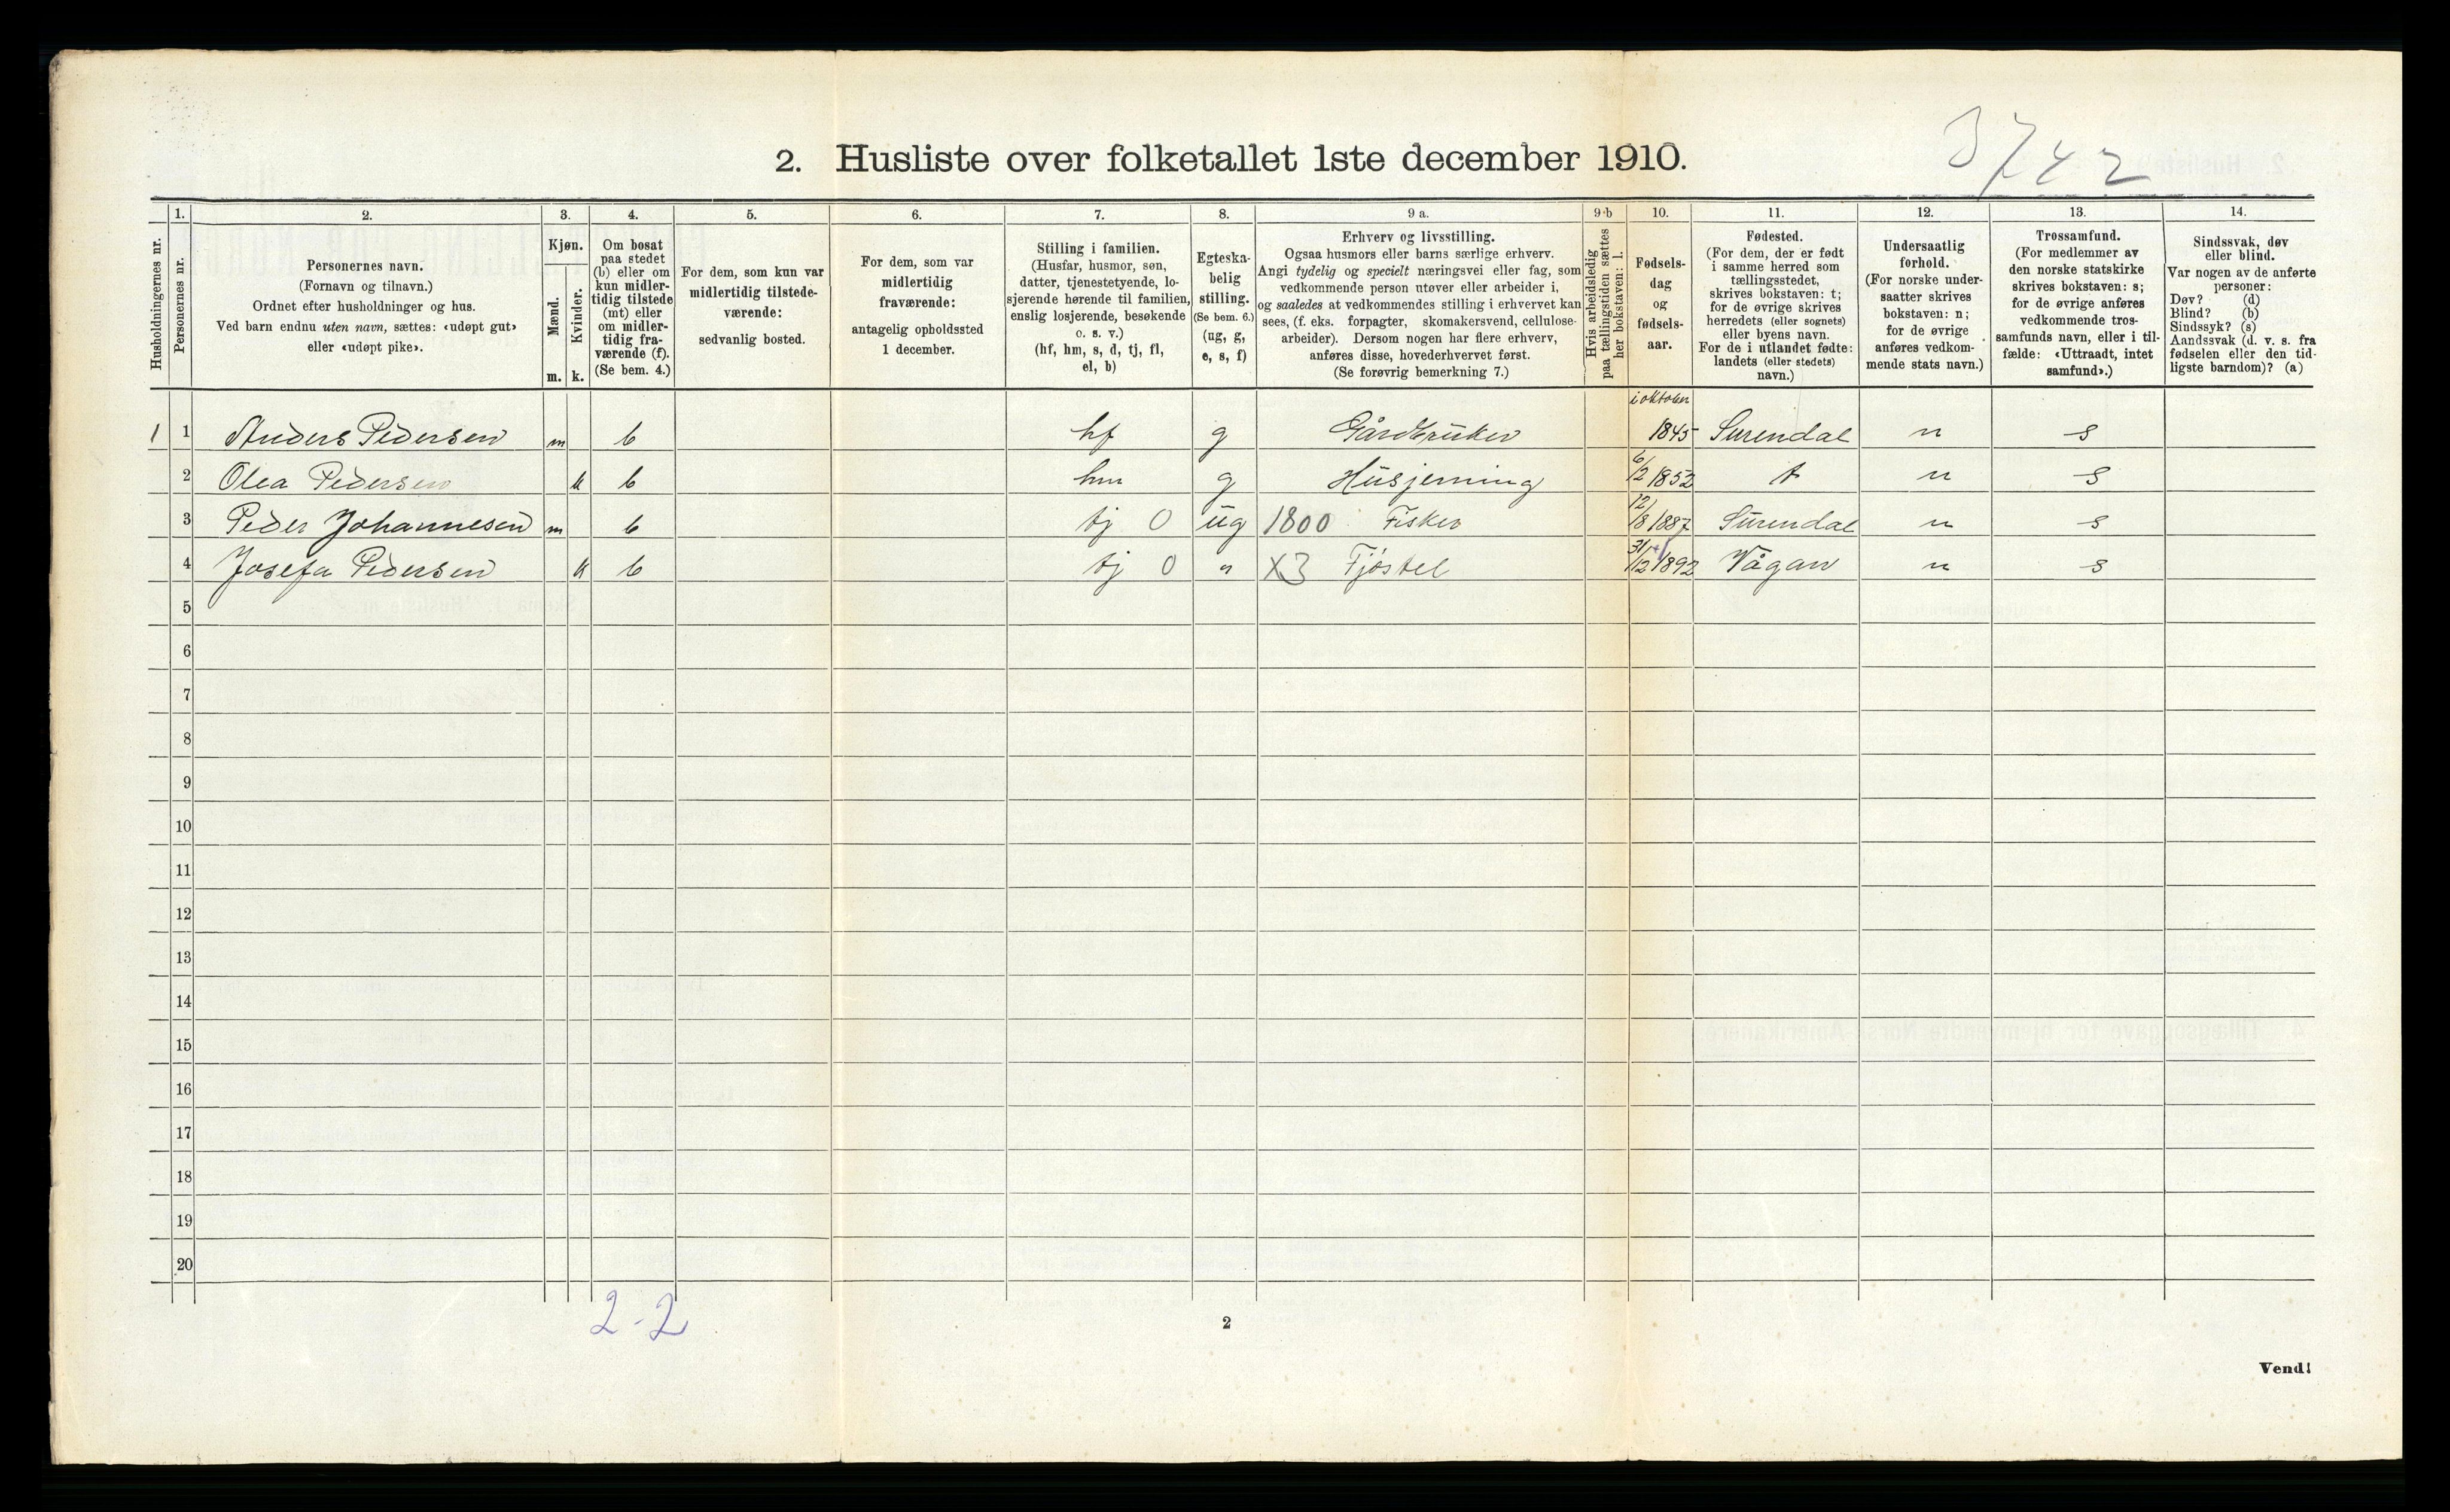 3742
2. Husliste over folketallet 1ste december 1910.
Husholdningernes nr.
1.
Personernes nr.
2.
Personernes navn.
(Fornavn og tilnavn.)
Ordnet efter husholdninger og hus.
Ved barn endnu uten navn, sættes: «udøpt gut»
eller «udøpt pike».
3.
Kjøn.
Mænd.
Kvinder.
m. k.
4.
Om bosat
paa stedet
(b) eller om
kun midler-
tidig tilstede
(mt) eller
om midler-
tidig fra-
værende (f).
(Se bem. 4.)
5.
For dem, som kun var
midlertidig tilstede-
værende:
sedvanlig bosted.
6.
For dem, som var
midlertidig
fraværende:
antagelig opholdssted
1 december.
7.
Stilling i familien.
(Husfar, husmor, søn,
datter, tjenestetyende, lo-
sjerende hørende til familien,
enslig losjerende, besøkende
o. s. v.)
(hf, hm, s, d, tj, fl,
el, b)
8.
Egteska-
belig
stilling.
(Se bem. 6.)
(ug, g,
e, s, f)
9 a.
Erhverv og livsstilling.
Ogsaa husmors eller barns særlige erhverv.
Angi tydelig og specielt næringsvei eller fag, som
vedkommende person utøver eller arbeider i,
og saaledes at vedkommendes stilling i erhvervet kan
sees, (f. eks. forpagter, skomakersvend, cellulose-
arbeider). Dersom nogen har flere erhverv,
anføres disse, hovederhvervet først.
(Se forøvrig bemerkning 7.)
9 b
Hvis arbeidsledig
paa tællingstiden sættes
her bokstaven: l.
10.
Fødsels-
dag
og
fødsels-
aar.
11.
Fødested.
(For dem, der er født
i samme herred som
tællingsstedet,
skrives bokstaven: t;
for de øvrige skrives
herredets (eller sognets)
eller byens navn.
For de i utlandet fødte:
landets (eller stedets)
navn.)
12.
Undersaatlig
forhold.
(For norske under-
saatter skrives
bokstaven: n;
for de øvrige
anføres vedkom-
mende stats navn.)
13.
Trossamfund.
(For medlemmer av
den norske statskirke
skrives bokstaven: s;
for de øvrige anføres
vedkommende tros-
samfunds navn, eller i til-
fælde: «Uttraadt, intet
samfund».)
14.
Sindssvak, døv
eller blind.
Var nogen av de anførte
personer:
Døv? (d)
Blind? (b)
Sindssyk? (s)
Aandssvak (d. v. s. fra
fødselen eller den tid-
ligste barndom)? (a)
1 1 Anders Pedersen m b hf g Gårdbruker i oktober 1845 Surendal n s
2 Olea Pedersen k b hm g Husjerning 6/2 1852 t n s
3 Peder Johannesen m b tj 0 ug 1800 Fisker 12/8 1887 Surendal n s
4 Josefa Pedersen k b tj 0 " X3 Fjøstel 31/12 1892 Vågan n s
5
6
7
8
9
10
11
12
13
14
15
16
17
18
19
20
2-2
2
Vend!